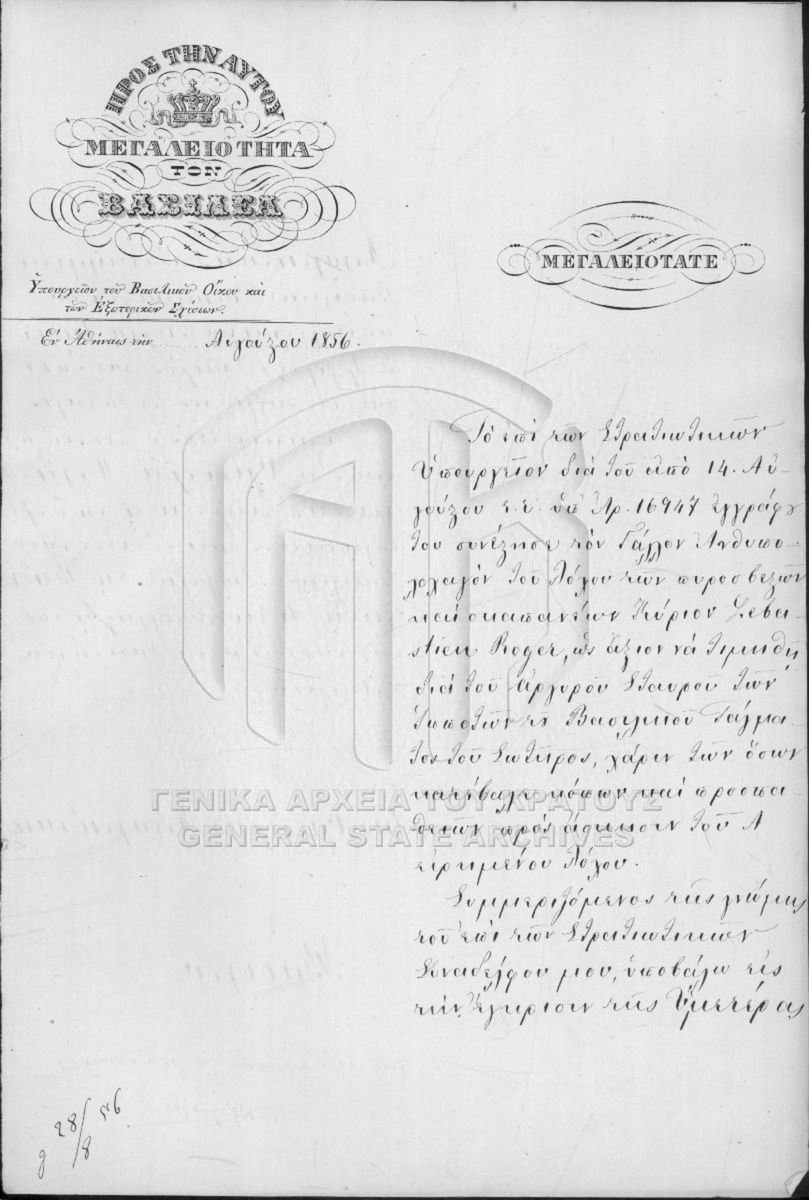 ΠΡΟΣ ΤΗΝ ΑΥΤΟΥ
ΜΕΓΑΛΕΙΟΤΗΤΑ
ΤΟΝ
ΒΑΣΙΛΕΑ
Ὑπουργεῖον τοῦ Βασιλικοῦ Οἴκου καὶ
τῶν Ἐξωτερικῶν Σχέσεων.
Ἐν Ἀθήναις τὴν Αὐγούστου 1856.
ΜΕΓΑΛΕΙΟΤΑΤΕ
Τὸ ἐπὶ τῶν Στρατιωτικῶν
Ὑπουργεῖον διὰ τοῦ ἀπὸ 14. Αὐ-
γούστου ἐ.ἔ. ὑπ' Ἀρ. 16947 ἐγγράφου
του συνέστησε τὸν Γάλλον Ἀνθυπο-
λοχαγὸν τοῦ Λόχου τῶν πυροσβεστῶν
καὶ σκαπανέων Κύριον Seba-
stien Roger, ὡς ἄξιον νὰ τιμηθῇ
διὰ τοῦ ἀργυροῦ Σταυροῦ τῶν
Ἱπποτῶν τοῦ Βασιλικοῦ Τάγμα-
τος τοῦ Σωτῆρος, χάριν τῶν ὅσων
κατέβαλε κόπων καὶ προσπα-
θειῶν πρὸς ἄσκησιν τοῦ
εἰρημένου Λόχου.
Συμμεριζόμενος τῆς γνώμης
τοῦ ἐπὶ τῶν Στρατιωτικῶν
Συναδέλφου μου, ὑποβάλω εἰς
τὴν ἔγκρισιν τῆς Ὑμετέρας
28/8 56
ΓΕΝΙΚΑ ΑΡΧΕΙΑ ΤΟΥ ΚΡΑΤΟΥΣ
GENERAL STATE ARCHIVES